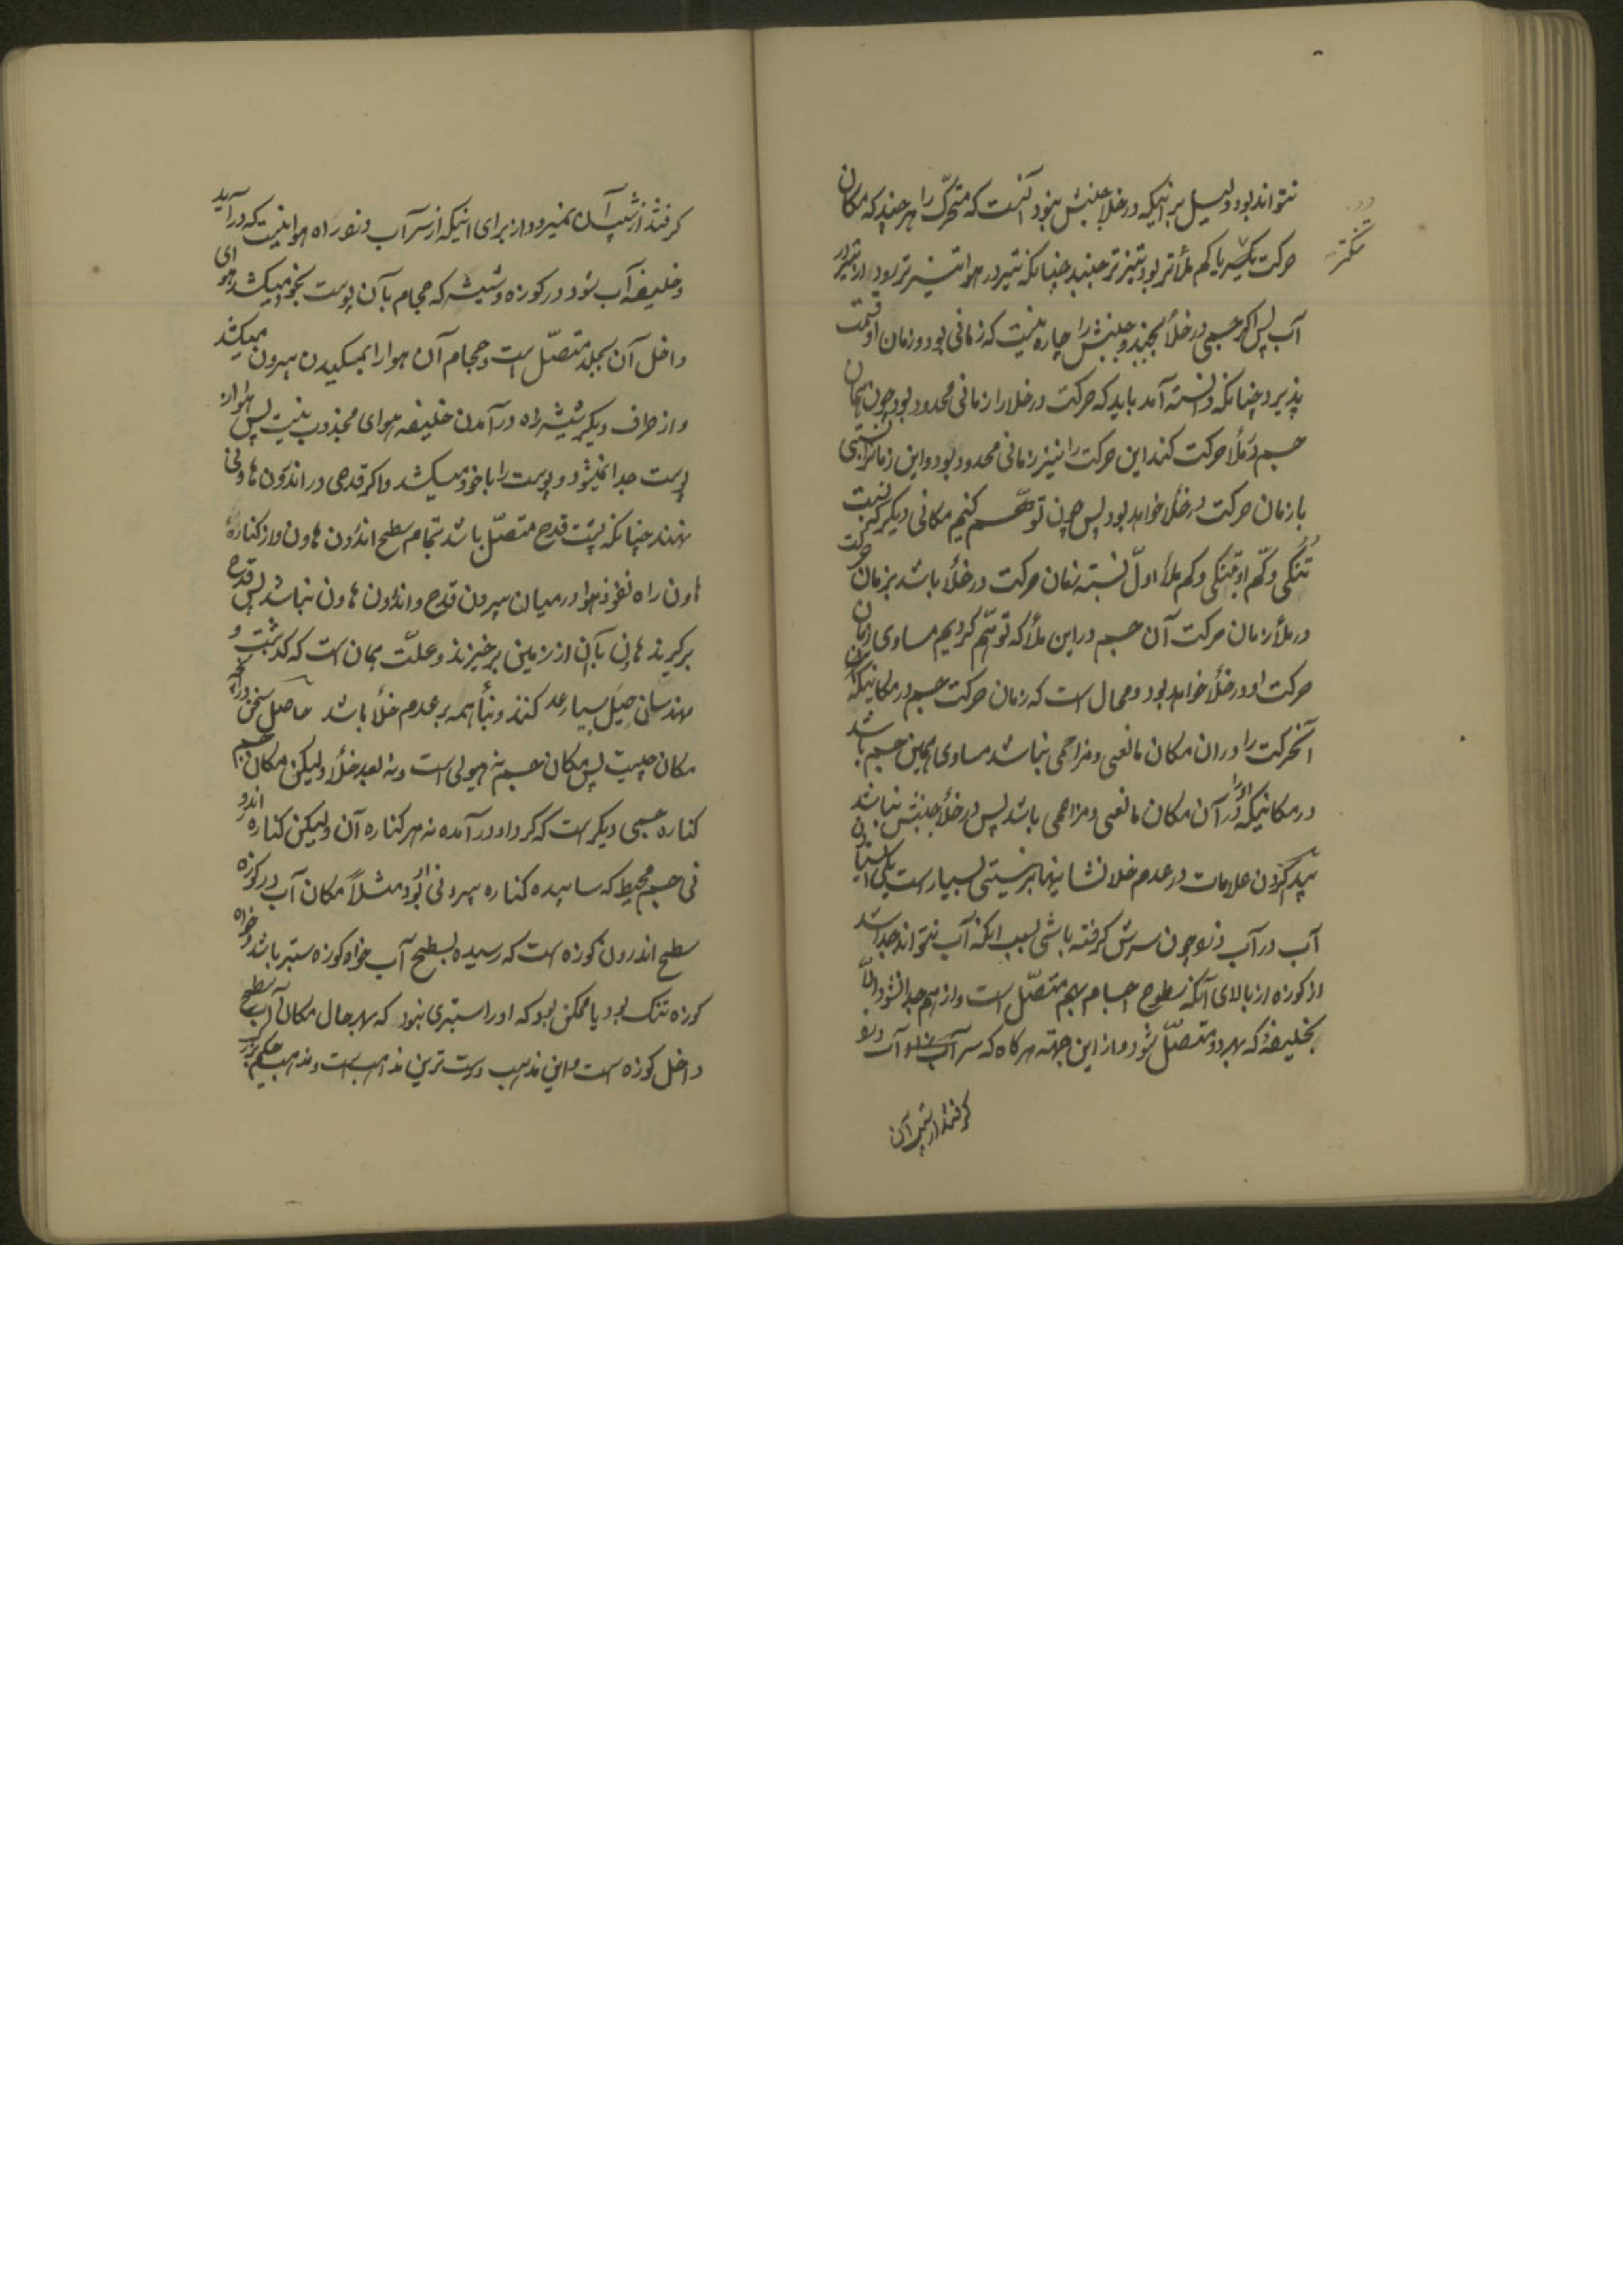 نتواند بود و دلیل بر اینکه در خلا جنبش نبود آنست که متحرک را هر چند که مکان
حرکت یا کم ملأتر بود تیزتر جنبد چنانکه تیر در هوا تیزتر رود از تیر در
تنکتر
آب پس اگر جسمی در خلأ بجنبد و جنبش را چاره نیست که زمانی بود و زمان او قسمت
پذیرد چنانکه دانسته آمد باید که حرکت در خلا را زمانی محدود بود چون همان
جسم در ملأ حرکت کند این حرکت را نیز زمانی محدود بود و این زمانرا نسبتی
با زمان حرکت در خلأ خواهد بود پس چون توهّم کنیم مکانی دیگر که نسبت
تنکی و کم او بتنکی و کم ملأ اولّ نسبة زمان حرکت در خلأ باشد بزمان حرکت
در ملأ زمان حرکت آن جسم در این ملأ که توهّم کردیم مساوی زمان
حرکت او در خلأ خواهد بود و محال است که زمان حرکت جسم در مکانیکه
آنحرکت را در ان مکان مانعی و مزاحمی نباشد مساوی همین جسم باشد
در مکانیکه او را در آن مکان مانعی و مزاحمی باشد پس در خلأ جنبش نباشد
پدید کردن علامات در عدم خلا نشانیها بر نیستی بسیار است یکی
آب در آب دزد چون سرش گرفته باشی بسبب آنکه آب نتواند جدا شد
از کوزه از بالای آنکه سطوح اجسام بهم متصّل است و از هم جدا نشود الّا
بخلیفهٔ که بهر دو متصّل شود و از این جهة هر کاه که سر آب دزد
گرفتند از شیب آن
گرفتند از شیب آن نمیرود از برای اینکه از سر آب دزد راه هوا نیست که در آید
و خلیفه آب شود در کوزه و شیشه که حجام بآن پوست بخود میکشد هوای
داخل آن بجلد متصّل است و حجام آن هوا را بمکیدن بیرون میکشد
و از طرف دیگر شیشه راه در آمدن خلیفه هوای مجذوب نیست پس هوا از
پوست جدا نمیشود و پوست را با خود میکشد و اگر قدحی در اندرون هاونی
نهند چنانکه پشت قدح متصّل باشد بتمام سطح اندرون هاون و از کنارهٔ
هاون راه نفوذ هوا در میان بیرون قدح و اندرون هاون نباشد پس قدح
برگیرند هاون بآن از زمین برخیزند و علّت همان است که گذشت و
مهندسان حیل بسیار عد کنند و بنأ همه بر عدم خلأ باشد حاصل سخن در آنکه
مکان چیست پس مکان جسم نه هیولی است و نه بعد خلأ ولیکن مکان جسم
کناره جسمی دیگر است که گرد او در آمده نه هر کناره آن ولیکن کناره اندرو
نی جسم محیط که ساینده کناره بیرونی او بود مثلاً مکان آب در کوزه
سطح اندرون کوزه است که رسیده بسطح آب خواه کوزه ستبر باشد و خواه
کوزه تنک بود یا ممکن بود که او را ستبری نبود که بهر حال مکان آب سطح
داخل کوزه است و این مذهب درست ترین مذاهب است و مذهب حکیم بزرگ